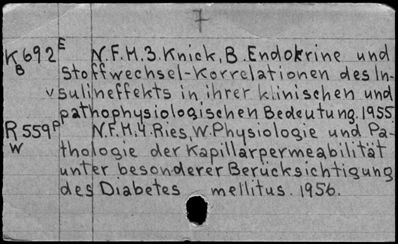 7
K 692 E N.F.M.3. Knick, B. Endokrine und
B Stoffwechsel-Korrelationen des In-
v sulineffekts in ihrer klinischen und
pathophysiologischen Bedeutung. 1955
R 559 P N.F.M.4. Ries, W. Physiologie und Pa-
W thologie der Kapillarpermeabilität
unter besonderer Berücksichtigung
des Diabetes mellitus. 1956.